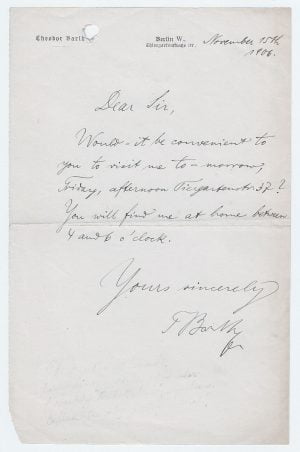 Theodor Barth
Berlin W.
Tiergartenstraße 37.
November 15th
1906.
Dear Sir,
Would it be convenient to
you to visit me to-morrow,
Friday, afternoon Tiergartenstr 37?
You will find me at home between
4 and 6 o'clock.
Yours sincerely
T Barth